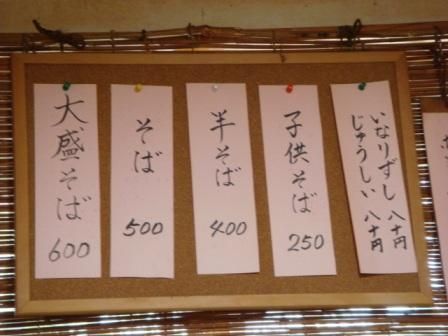 いなりずし 八十円
じゅうしい 八十円
子供そば 250
半そば 400
そば 500
大盛そば 600